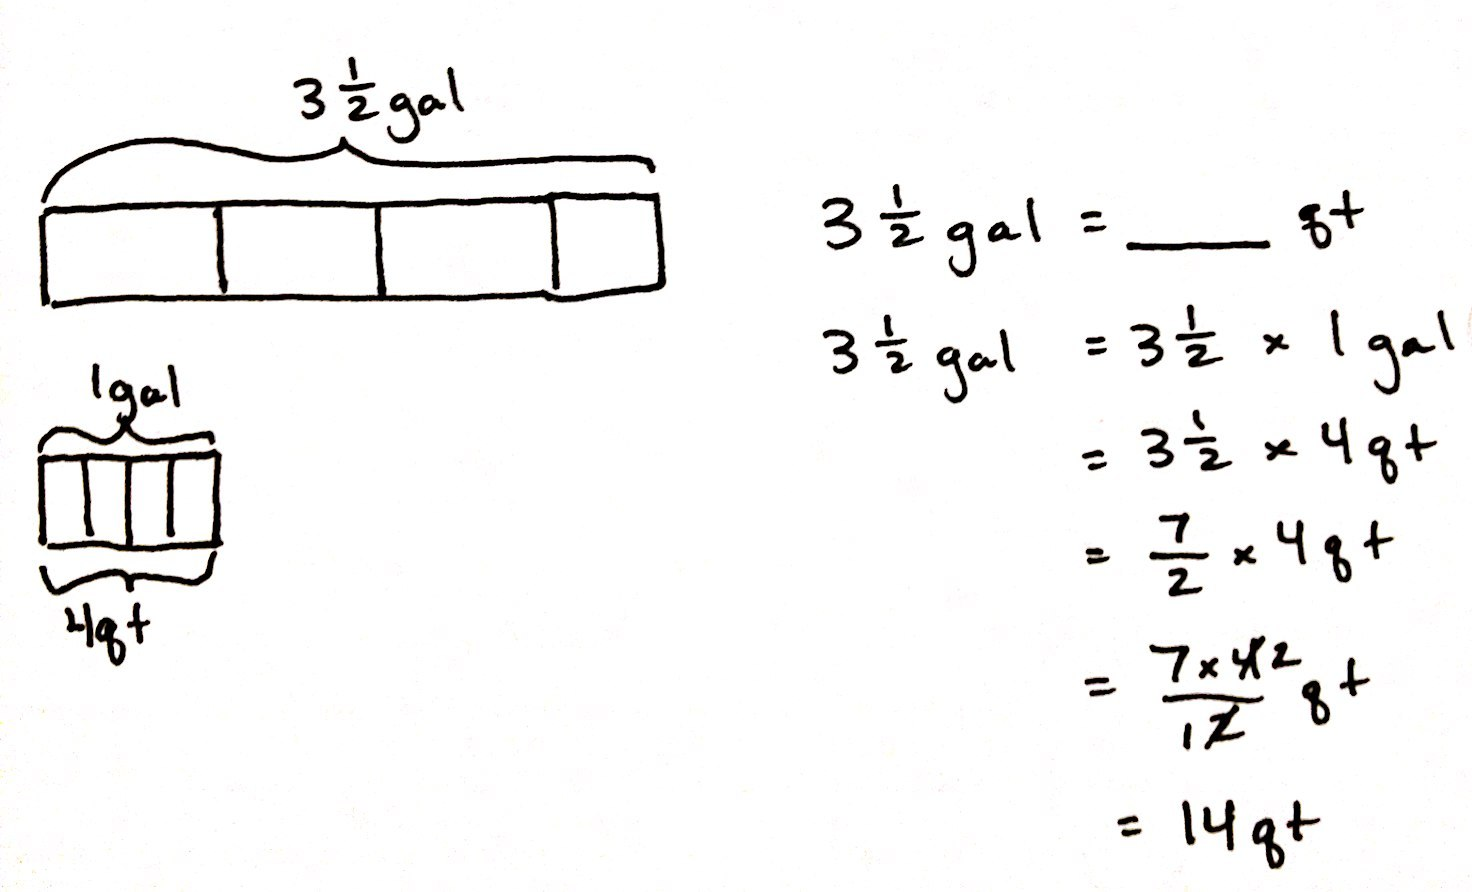 3 1/2 gal
1gal
4qt
3 1/2 gal = ____ qt
3 1/2 gal = 3 1/2 × 1 gal
= 3 1/2 × 4qt
= 7/2 × 4qt
= 7×4 2/1 2 qt
= 14qt